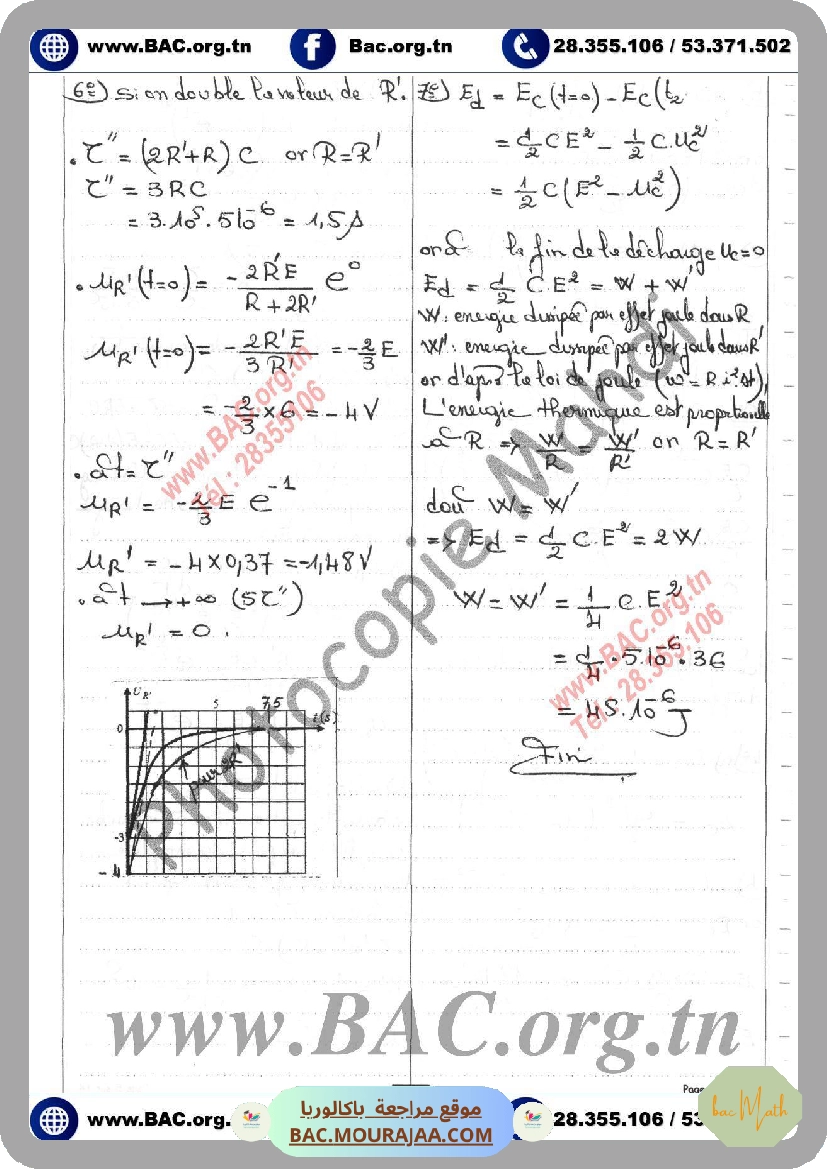 www.BAC.org.tn Bac.org.tn 28.355.106 / 53.371.502
6°) si on double la valeur de R'.
. τ'' = (2R'+R) C or R=R'
τ'' = 3RC
= 3.10⁵.5.10⁻⁶ = 1,5 s
. u_R'(t=0) = - 2R'E / (R + 2R') e⁰
u_R'(t=0) = - 2R'E / 3R' = - 2/3 E
= - 2/3 x 6 = - 4V
. à t = τ''
u_R' = - 2/3 E e⁻¹
u_R' = - 4 x 0,37 = -1,48V
. à t → +∞ (5τ'')
u_R' = 0 .
U_R'
5 7,5
t(s)
0
pour 2R'
-3
-4
7°) Ed = Ec (t=0) - Ec (t₂
= 1/2 C E² - 1/2 C.Uc²
= 1/2 C (E² - Uc²)
or à la fin de la décharge Uc=0
Ed = 1/2 C.E² = W + W'
W : energie dissipée par effet joule dans R
W' : energie dissipée par effet joule dans R'
or d'après la loi de joule (W = R i².Δt),
L'energie thermique est proportionnelle
à R => W/R = W'/R' or R = R'
d'où W = W'
=> Ed = 1/2 C.E² = 2W
W = W' = 1/4 C.E²
= 1/4 . 5.10⁻⁶ . 36
= 45.10⁻⁶ J
Fin
www.BAC.org.tn
Tel : 28355106
www.BAC.org.tn
Tel : 28.355.106
Photocopie Mahdi
www.BAC.org.tn
Page
www.BAC.org. 28.355.106 / 53
موقع مراجعة باكالوريا
BAC.MOURAJAA.COM
bac Math